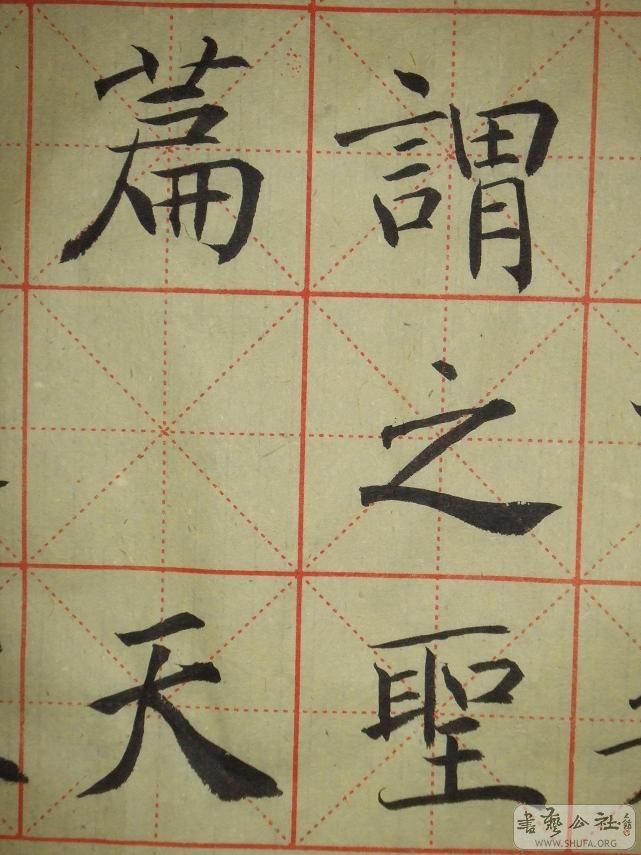 謂之聖
篇 天
書藝公社
WWW.SHUFA.ORG